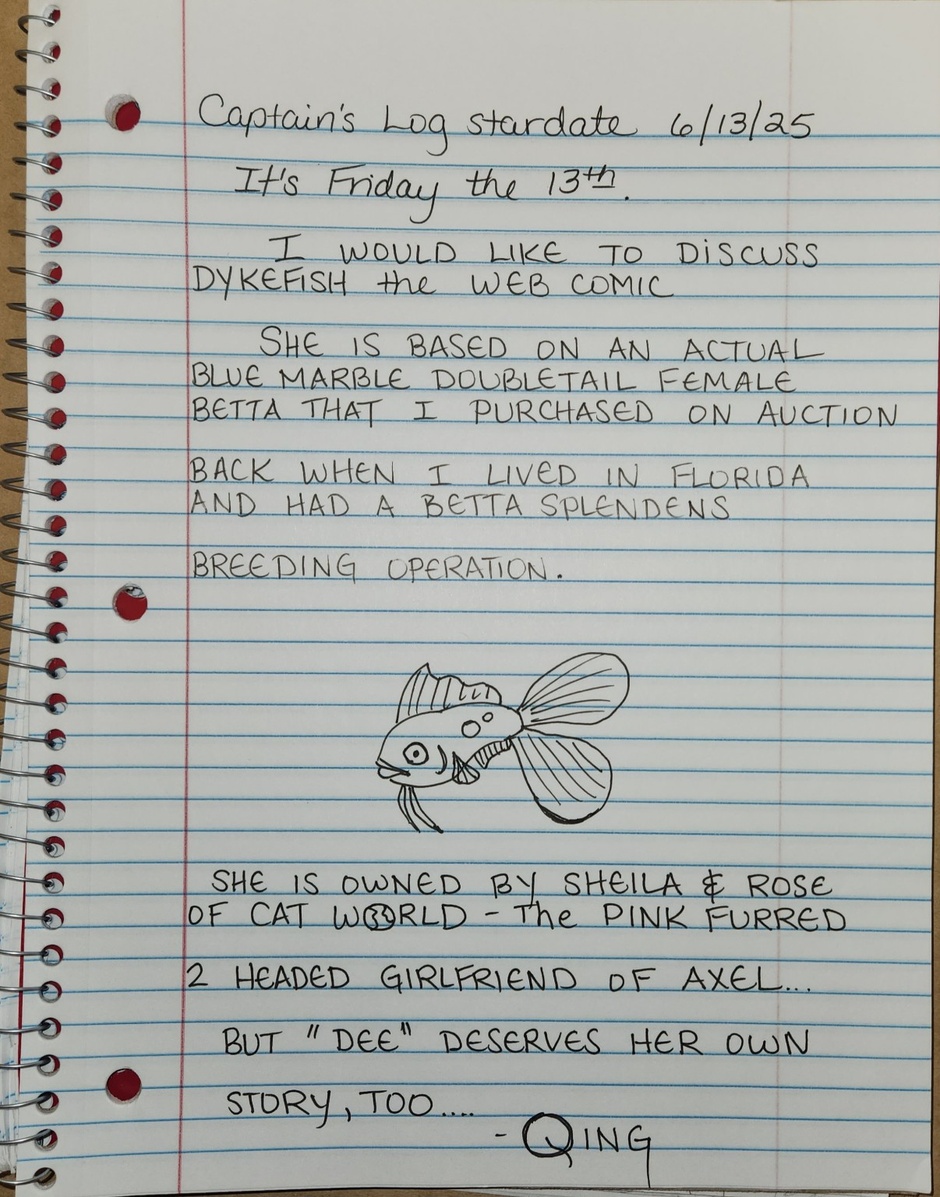 Captain's Log stardate 6/13/25
It's Friday the 13th.
I WOULD LIKE TO DiSCUSS
DYKEFISH the WEB COMIC
SHE IS BASED ON AN ACTUAL
BLUE MARBLE DOUBLETAIL FEMALE
BETTA THAT I PURCHASED ON AUCTION
BACK WHEN I LIVED IN FLORIDA
AND HAD A BETTA SPLENDENS
BREEDING OPERATION.
SHE IS OWNED BY SHEILA & ROSE
OF CAT WORLD - The PINK FURRED
2 HEADED GIRLFRIEND OF AXEL...
BUT "DEE" DESERVES HER OWN
STORY, TOO....
- QING